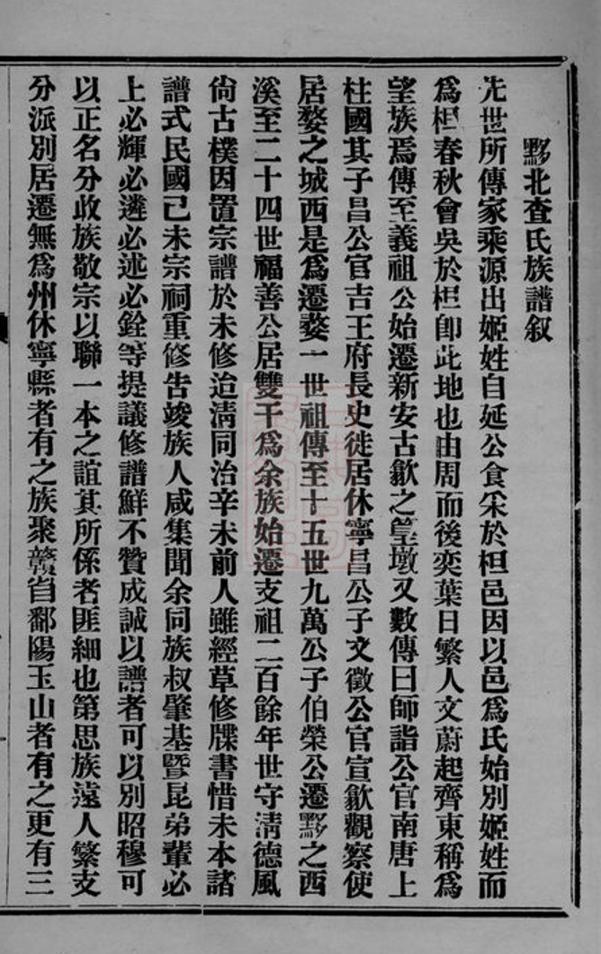 黟北查氏族譜叙
先世所傳家乘源出姬姓自延公食采於柤邑因以邑爲氏始別姬姓而
爲柤春秋會吳於柤卽此地也由周而後奕葉日繁人文蔚起齊東稱爲
望族焉傳至義祖公始遷新安古歙之篁墩又數傳曰師詣公官南唐上
柱國其子昌公官吉王府長史徙居休寧昌公子文徵公官宣歙觀察使
居婺之城西是爲遷婺一世祖傳至十五世九萬公子伯榮公遷黟之西
溪至二十四世福善公居雙干爲余族始遷支祖二百餘年世守淸德風
尙古樸因置宗譜於未修迨淸同治辛未前人雖經草修牒書惜未本諸
譜式民國己未宗祠重修告竣族人咸集聞余同族叔肇基曁昆弟輩必
上必輝必遴必述必銓等提議修譜鮮不贊成誠以譜者可以別昭穆可
以正名分收族敬宗以聯一本之誼其所係者匪細也第思族遠人繁支
分派別居遷無爲州休寧縣者有之族聚贛省鄱陽玉山者有之更有三